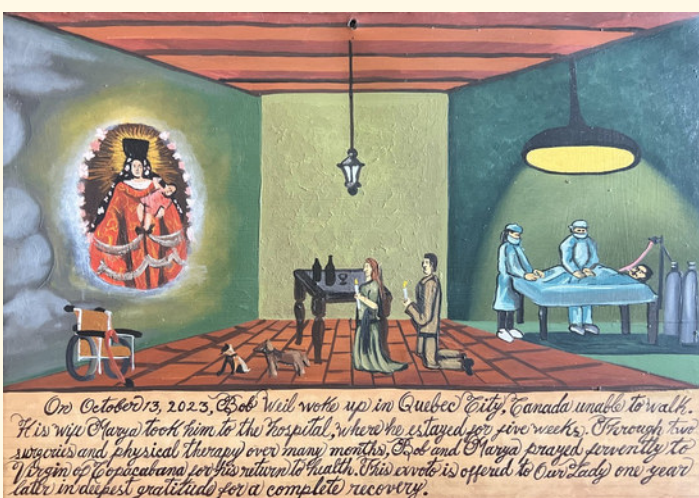 On October 13, 2023, Bob Weil woke up in Quebec City, Canada unable to walk.
His wife Marya took him to the hospital, where he stayed for five weeks. Through two
surgeries and physical therapy over many months, Bob and Marya prayed fervently to
Virgin of Copacabana for his return to health. This exvoto is offered to Our Lady one year
later in deepest gratitude for a complete recovery.